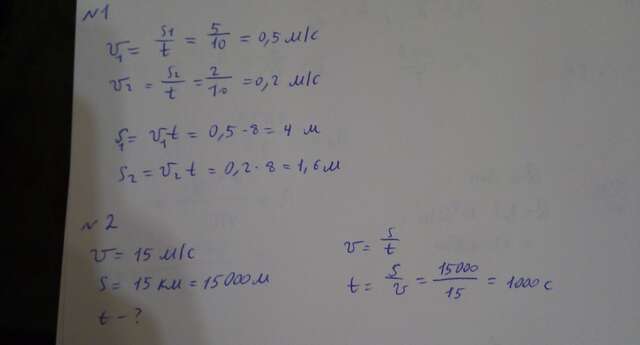 №1
v₁ = s₁/t = 5/10 = 0,5 м/с
v₂ = s₂/t = 2/10 = 0,2 м/с
s₁ = v₁t = 0,5·8 = 4 м
s₂ = v₂t = 0,2·8 = 1,6 м
№2
v = 15 м/с
v = s/t
s = 15 км = 15000 м
t = s/v = 15000/15 = 1000 с
t - ?